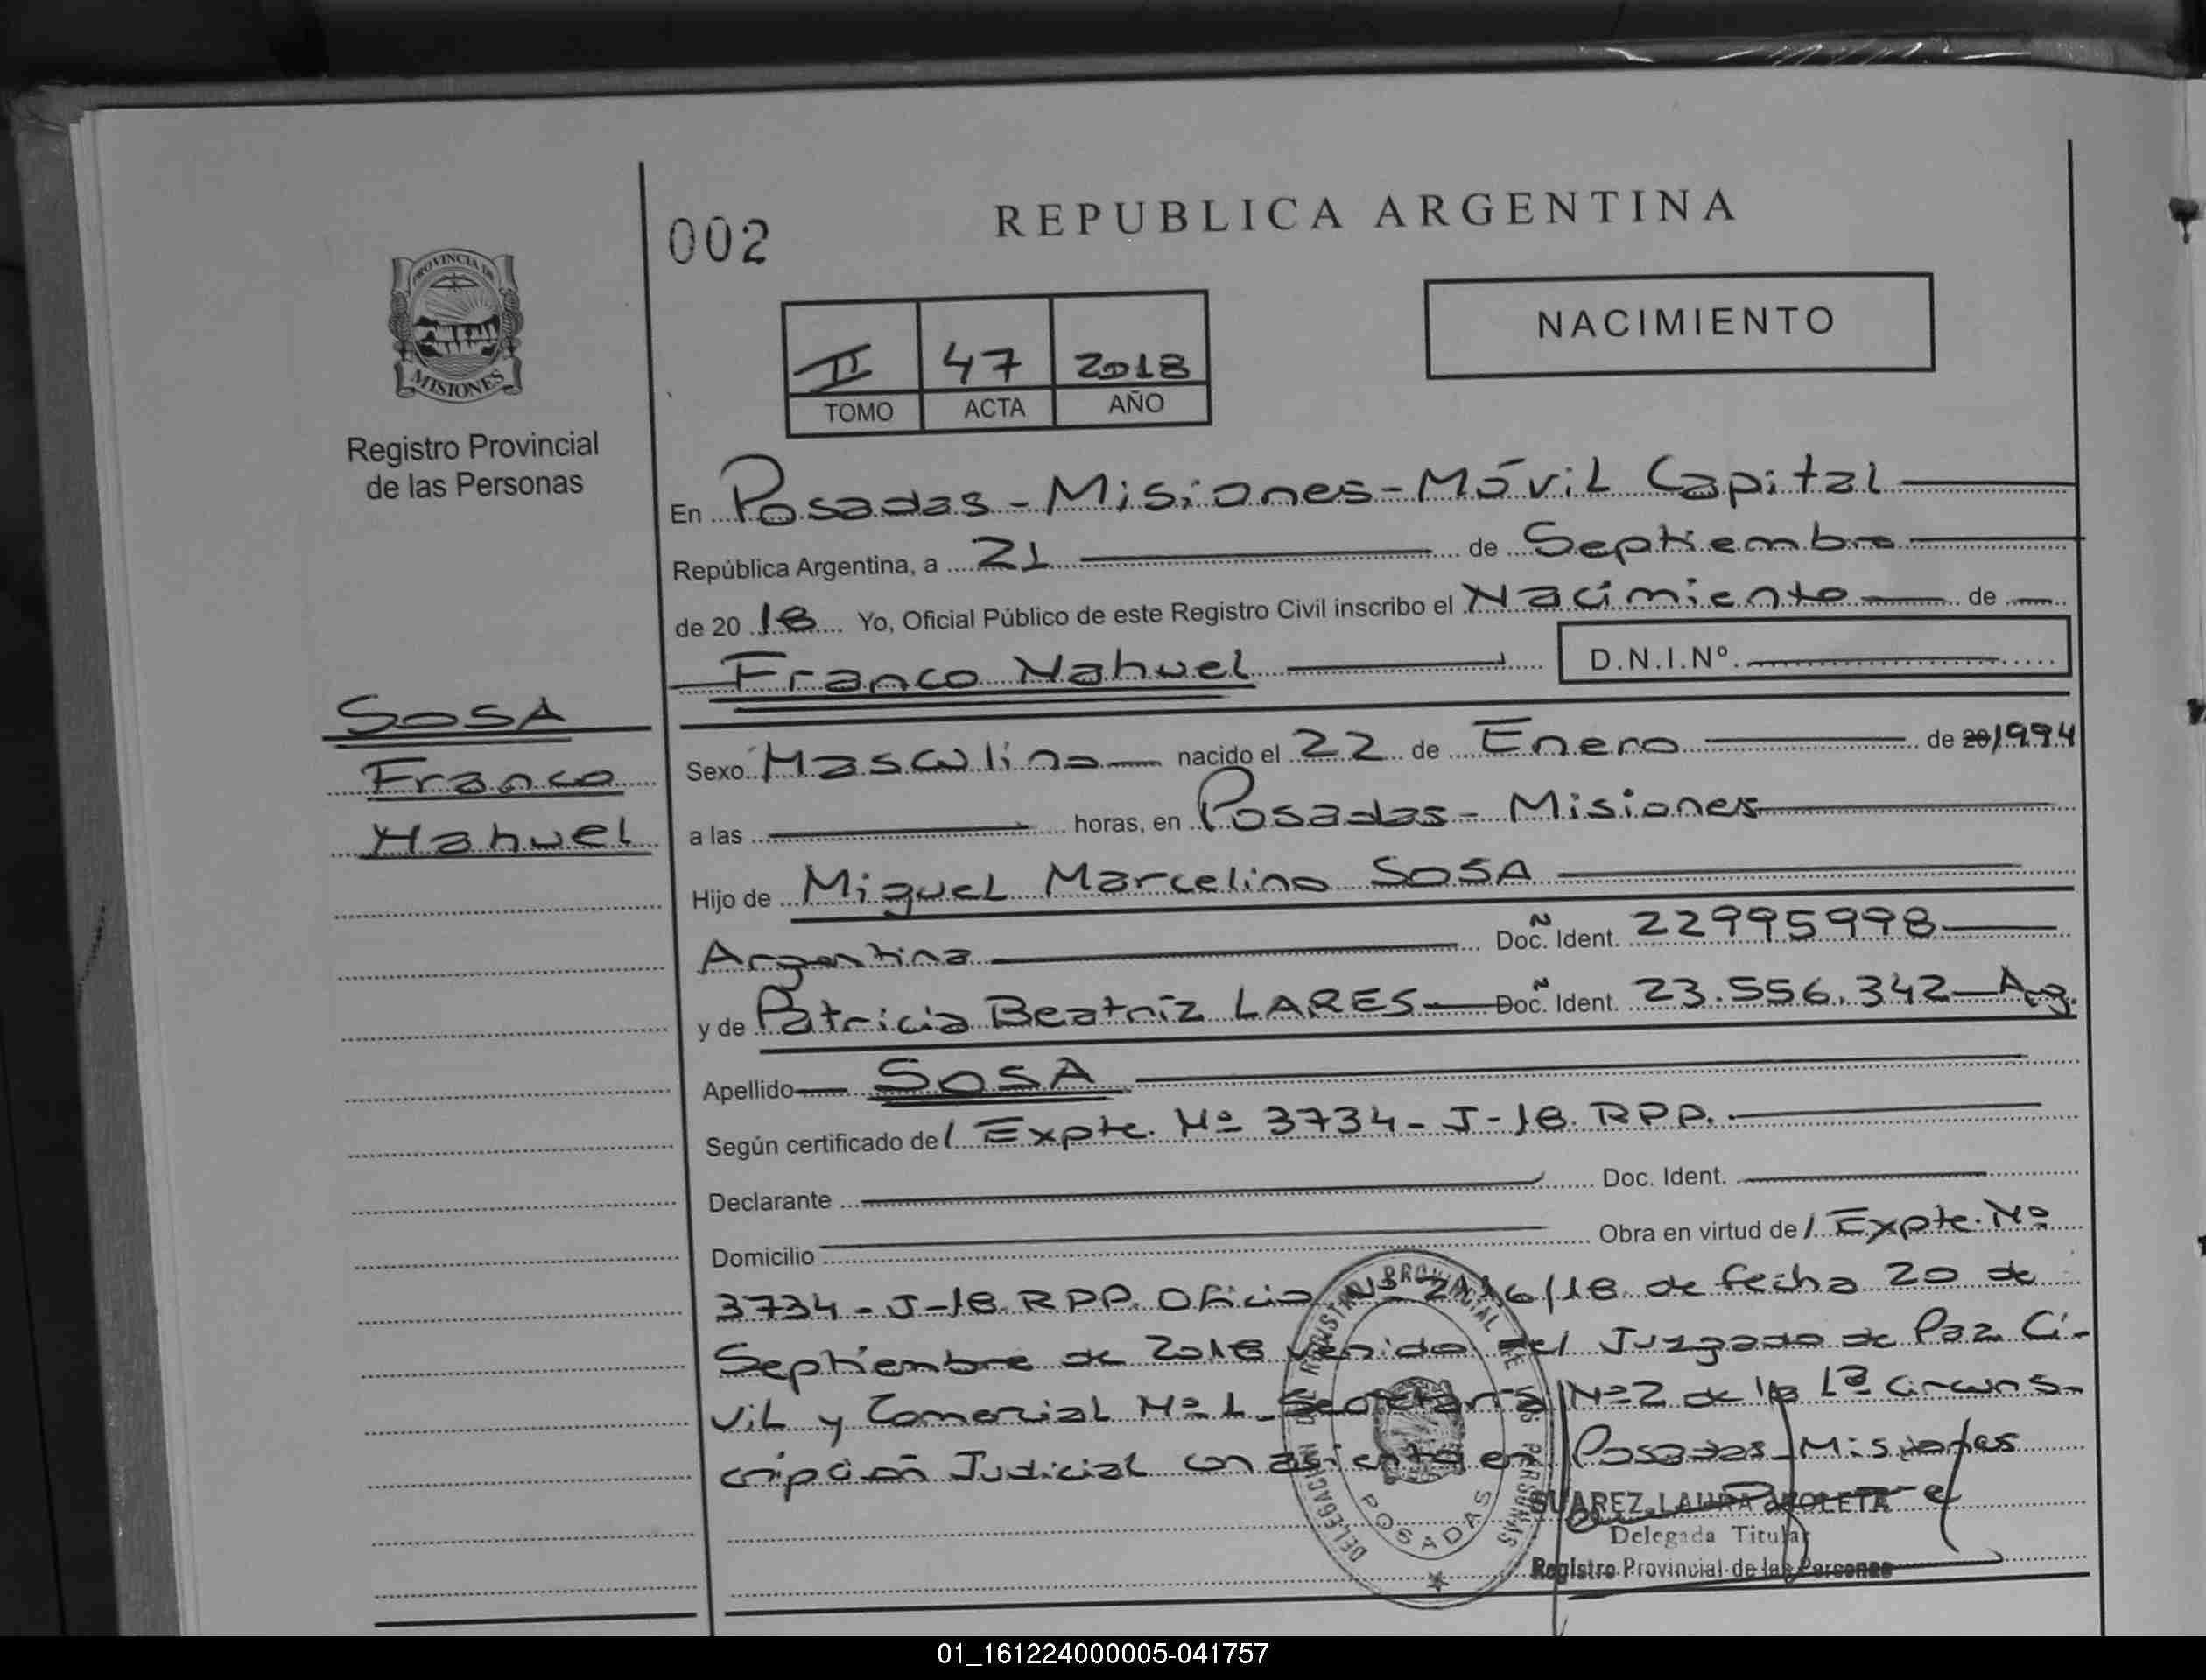 002
REPUBLICA ARGENTINA
PROVINCIA DE
MISIONES
Registro Provincial
de las Personas
II 47 2018
TOMO ACTA AÑO
NACIMIENTO
En Posadas - Misiones - Móvil Capital
República Argentina, a 21 de Septiembre
de 20 18 Yo, Oficial Público de este Registro Civil inscribo el Nacimiento de
Franco Nahuel D.N.I.Nº.
SOSA
Franco
Nahuel
Sexo Masculino nacido el 22 de Enero de 20 1994
a las horas, en Posadas - Misiones
Hijo de Miguel Marcelino SOSA
Argentina Doc. Ñ Ident. 22995998
y de Patricia Beatriz LARES Doc. Ñ Ident. 23.556.342 - Arg.
Apellido SOSA
Según certificado de / Expte. Nº 3734 - J - 18. RPP.
Declarante Doc. Ident.
Domicilio Obra en virtud de / Expte. Nº
3734 - J - 18. RPP. Oficio Nº /18 de fecha 20 de
Septiembre de 2018 venido del Juzgado de Paz Ci-
vil y Comercial Nº 1 - Secretaría Nº 2 de la 1ª Circuns-
cripción Judicial con asiento en Posadas - Misiones
DELEGACION DEL REGISTRO PROVINCIAL DE LAS PERSONAS
POSADAS
SUAREZ LAURA VIOLETA
Delegada Titular
Registro Provincial de las Personas
01_161224000005-041757